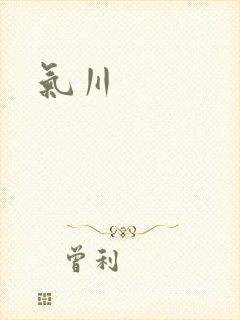 氣川
曾利